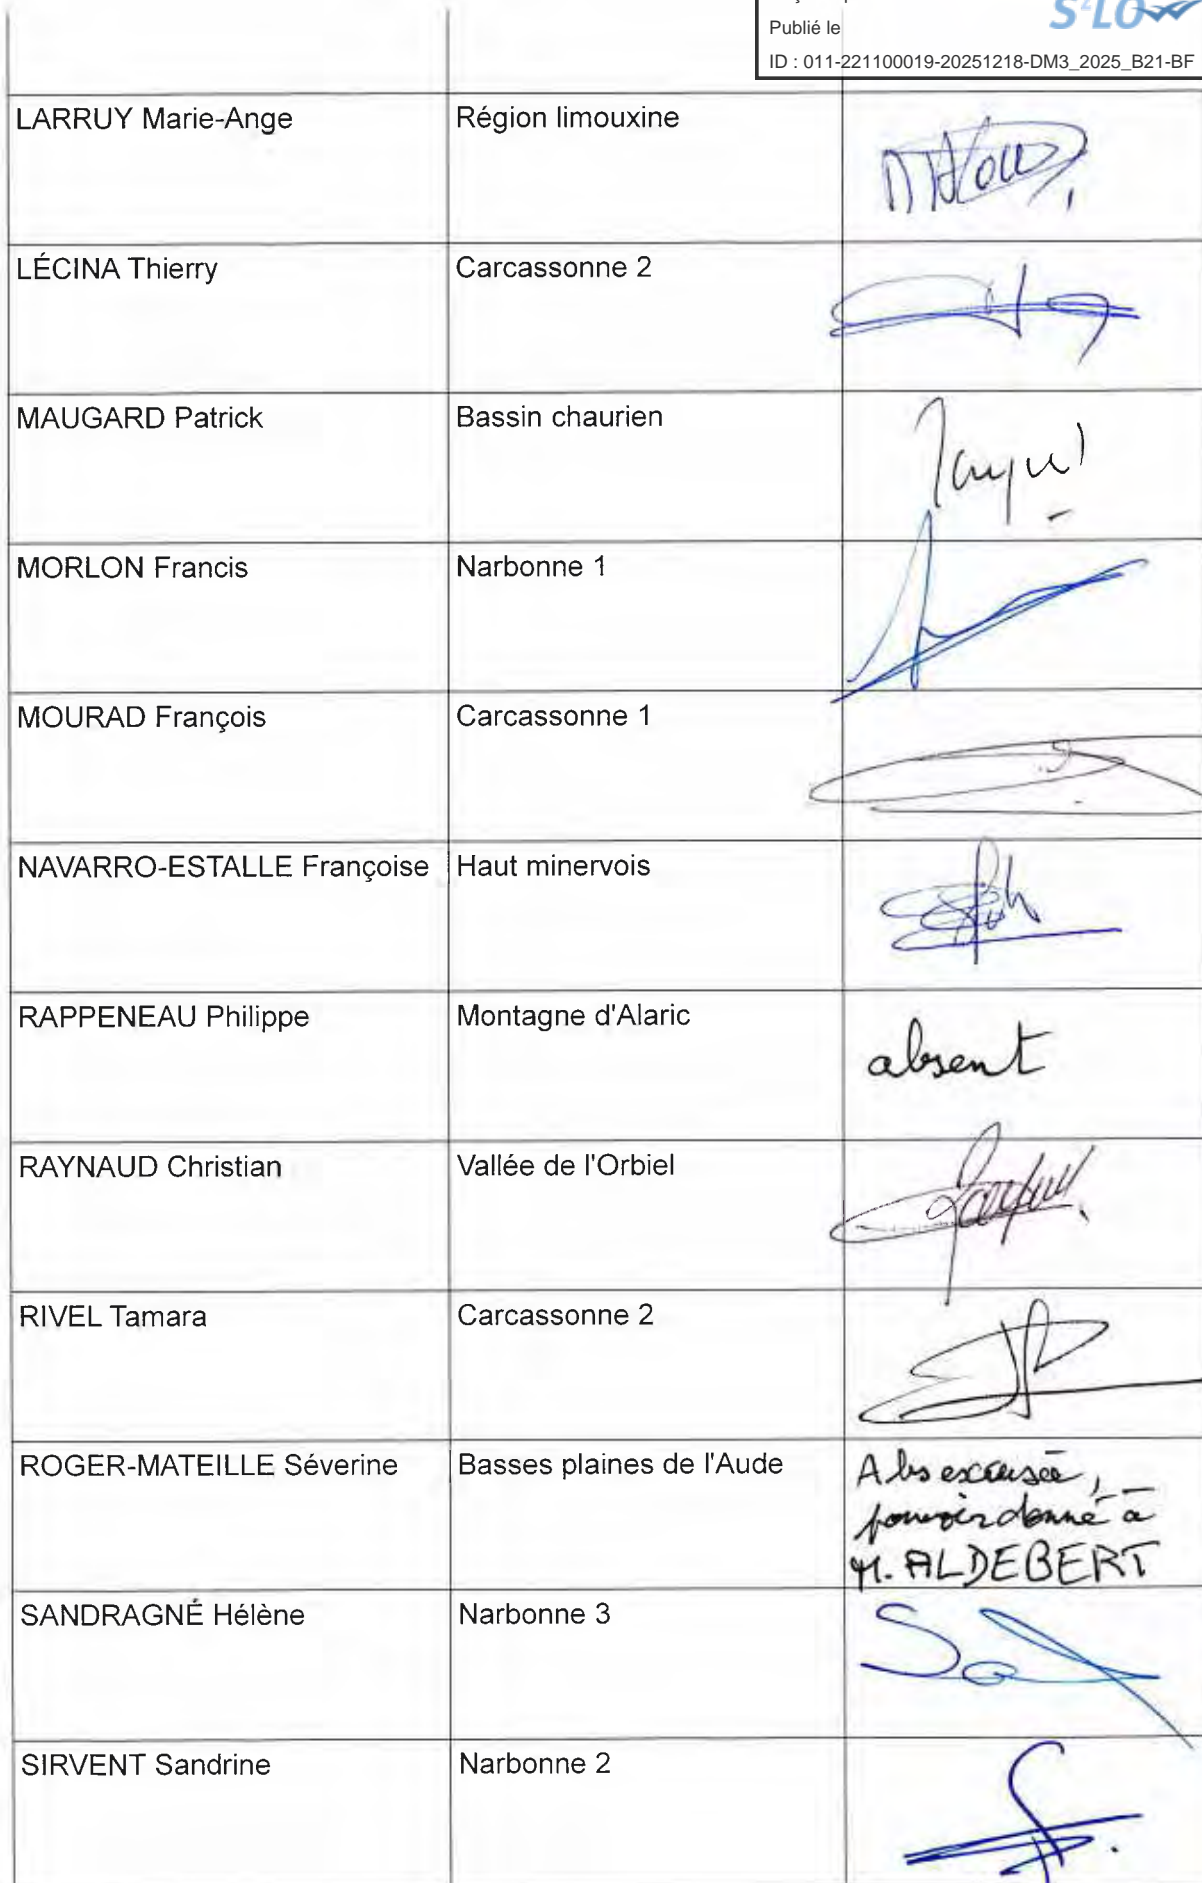 S²LO
Publié le
ID : 011-221100019-20251218-DM3_2025_B21-BF
LARRUY Marie-Ange Région limouxine
LÉCINA Thierry Carcassonne 2
MAUGARD Patrick Bassin chaurien
MORLON Francis Narbonne 1
MOURAD François Carcassonne 1
NAVARRO-ESTALLE Françoise Haut minervois
RAPPENEAU Philippe Montagne d'Alaric absent
RAYNAUD Christian Vallée de l'Orbiel
RIVEL Tamara Carcassonne 2
ROGER-MATEILLE Séverine Basses plaines de l'Aude Abs excusée,
pouvoir donné à
M. ALDEBERT
SANDRAGNÉ Hélène Narbonne 3
SIRVENT Sandrine Narbonne 2